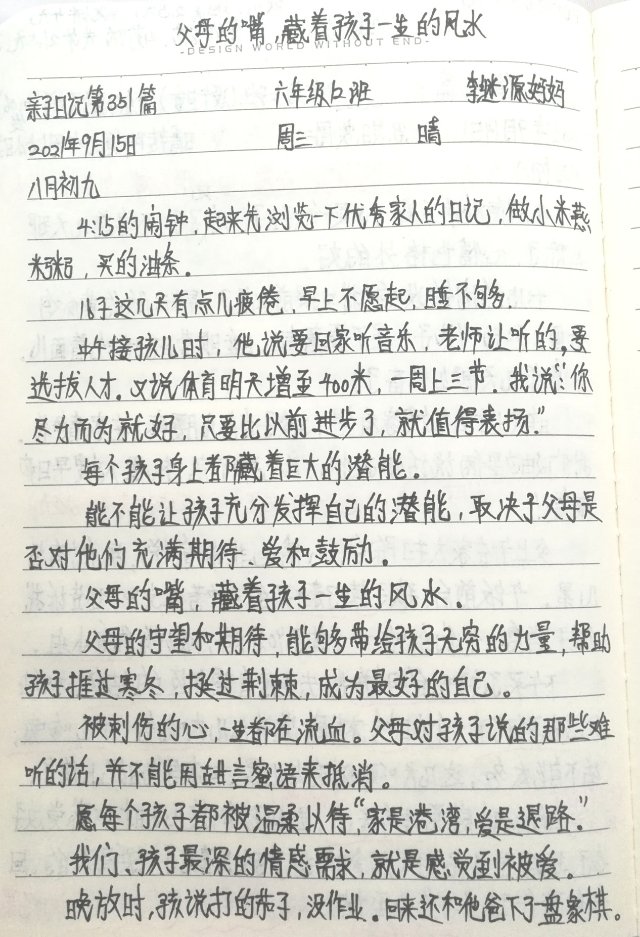 父母的嘴,藏着孩子一生的风水
-DESIGN WORLD WITHOUT END-
亲子日记第351篇 六年级12班 李继源妈妈
2021年9月15日 周三 晴
八月初九
4:15的闹钟,起来先浏览一下优秀家人的日记,做小米燕
粥,买的油条。
儿子这几天有点儿疲倦,早上不愿起,睡不够.
中午接孩儿时,他说要回家听音乐,老师让听的,要
选拔人才.又说体育明天增至400米,一周上三节.我说:"你
尽力而为就好,只要比以前进步了,就值得表扬."
每个孩子身上都藏着巨大的潜能。
能不能让孩子充分发挥自己的潜能,取决于父母是
否对他们充满期待、爱和鼓励。
父母的嘴,藏着孩子一生的风水。
父母的守望和期待,能够带给孩子无穷的力量,帮助
孩子捱过寒冬,挺过荆棘,成为最好的自己。
被刺伤的心,一生都在流血。父母对孩子说的那些难
听的话,并不能用甜言蜜语来抵消。
愿每个孩子都被温柔以待"家是港湾,爱是退路."
我们、孩子最深的情感需求,就是感觉到被爱。
晚放时,孩说打的茄子,没作业。回来还和他爸下了一盘象棋。